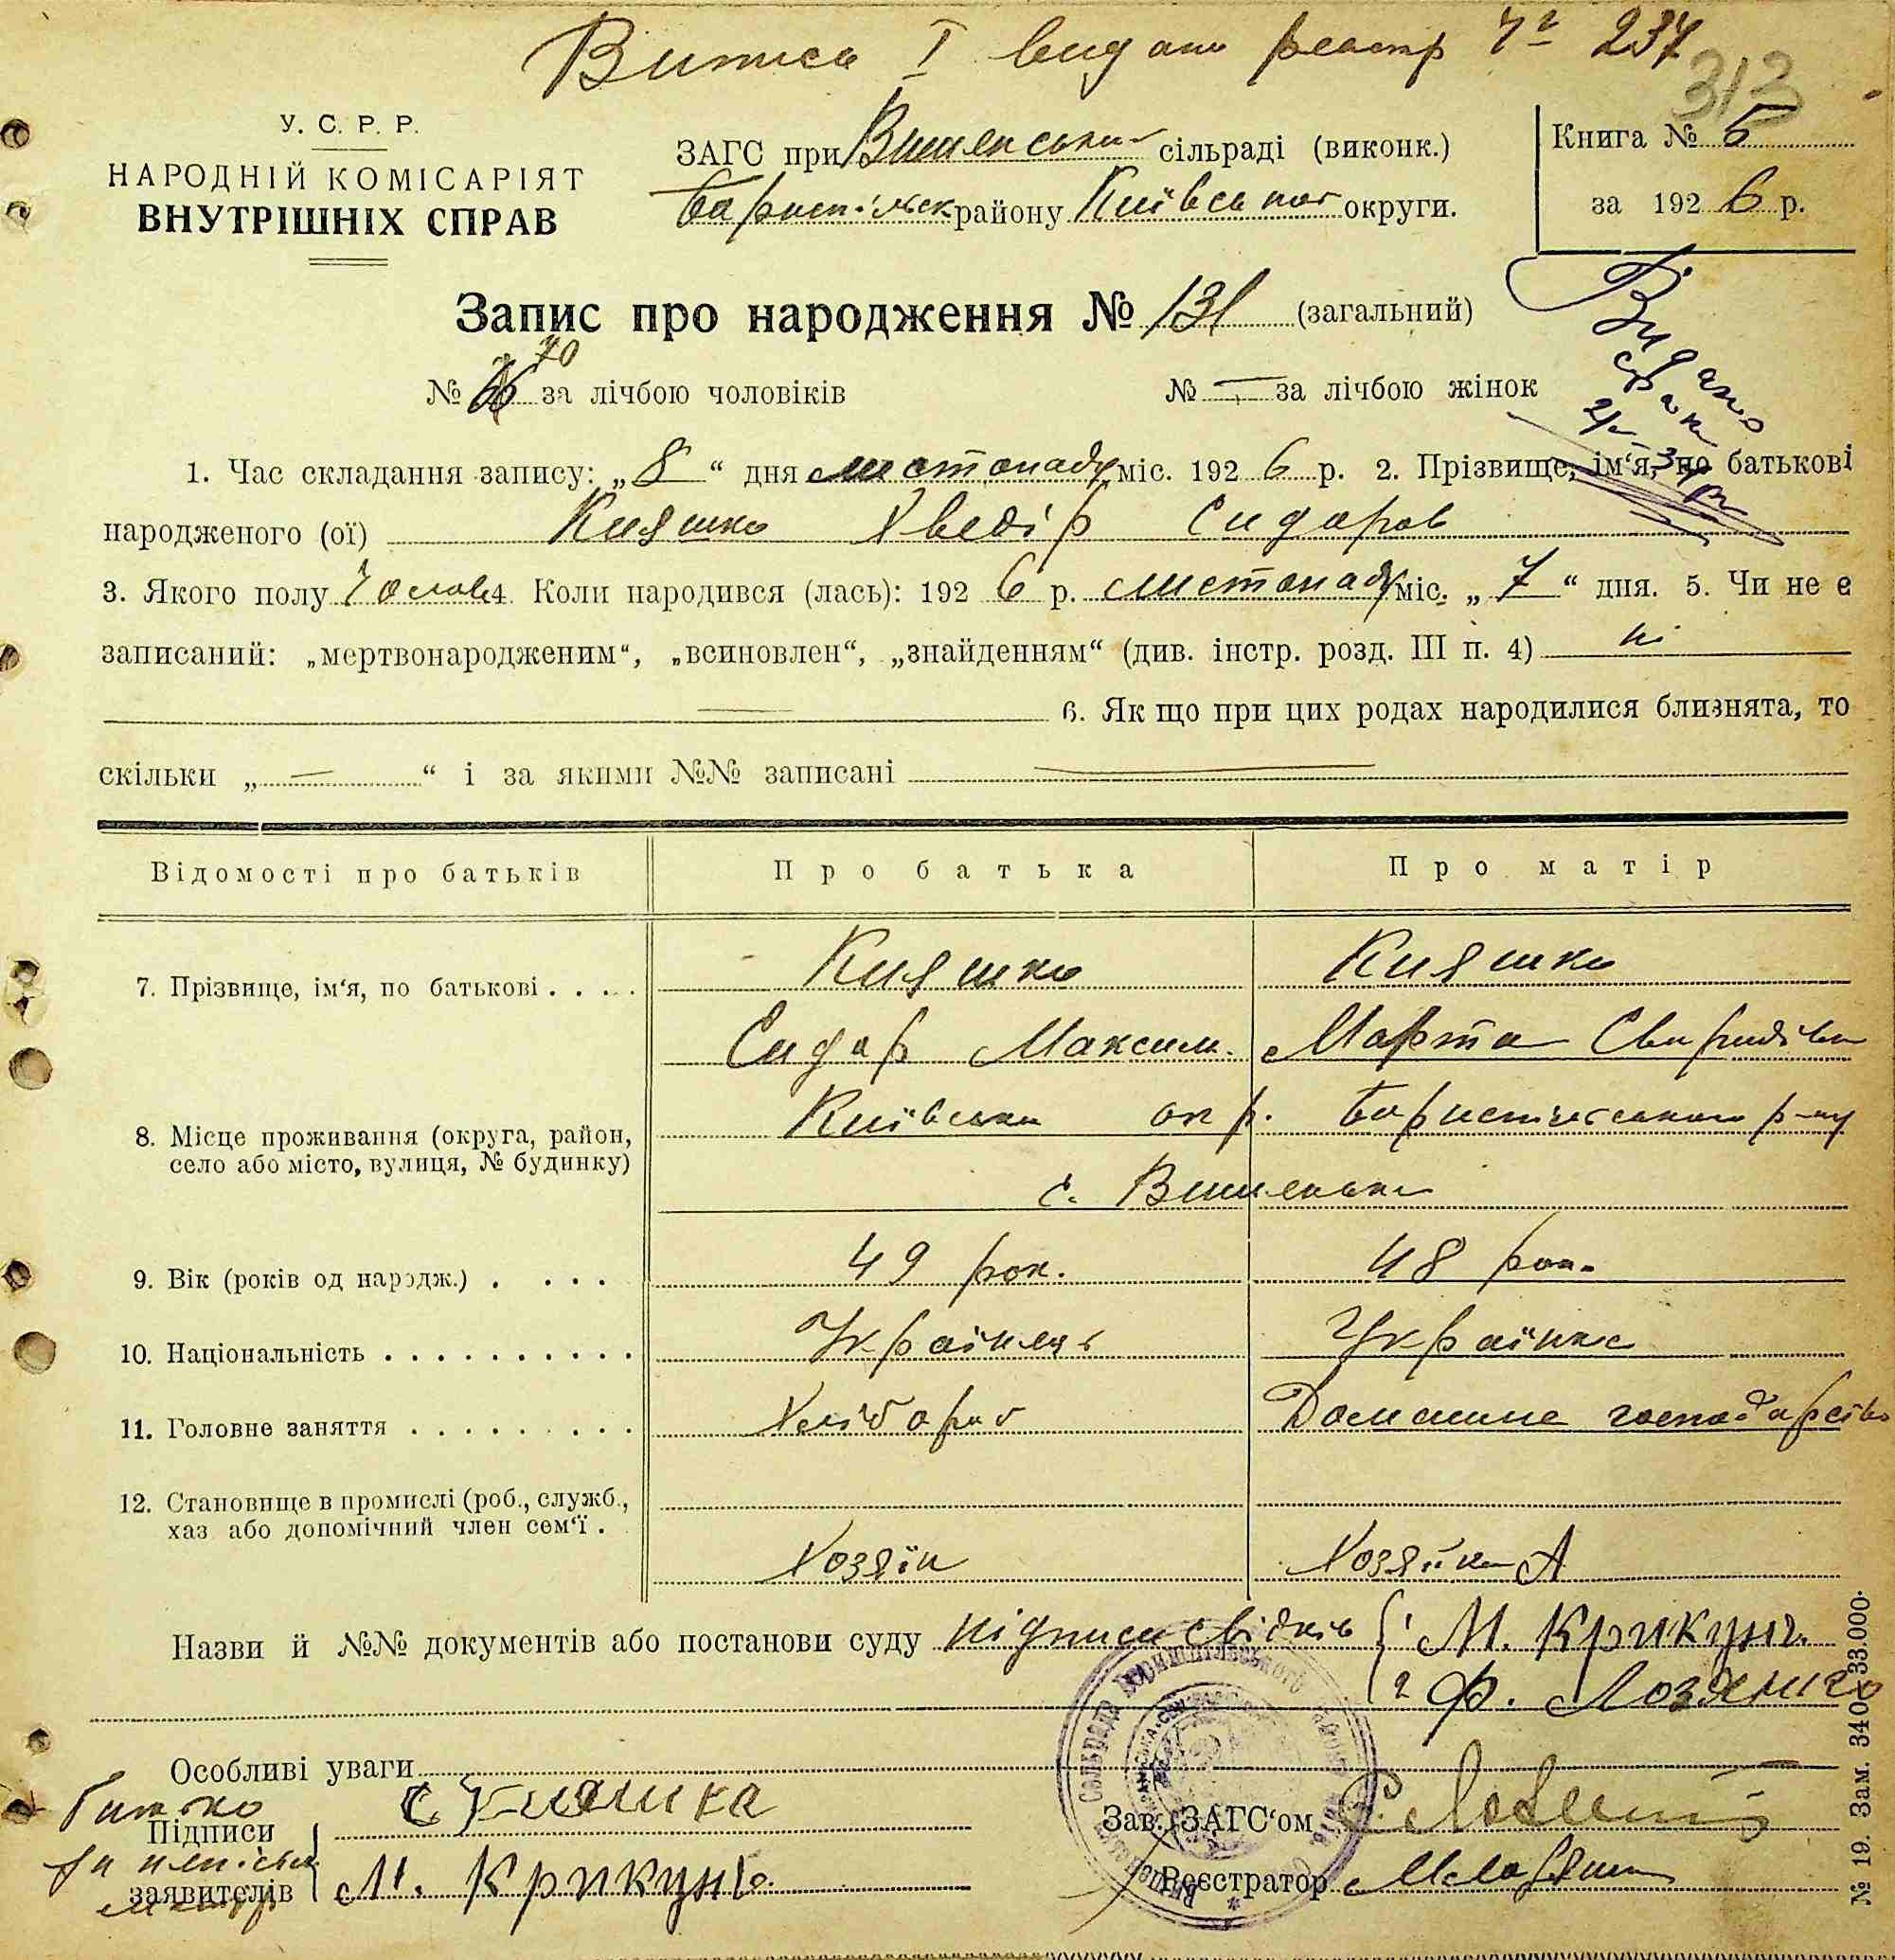 Витись I видано реєстр № 237
313
У. С. Р. Р.
НАРОДНІЙ КОМІСАРІЯТ
ВНУТРІШНІХ СПРАВ
ЗАГС при Вишенський сільраді (виконк.)
Бориспільськ району Київської округи.
Книга № 6
за 1926 р.
Видано
Запис про народження № 131 (загальний)
№ 70 за лічбою чоловіків № — за лічбою жінок
1. Час складання запису: „8“ дня листопаду міс. 1926 р. 2. Прізвище, ім‘я, по батькові
народженого (ої) Кияшко Хведір Сидоров
3. Якого полу Чолов. 4. Коли народився (лась): 1926 р. листопаду міс. „7“ дня. 5. Чи не є
записаний: „мертвонародженим“, „всиновлен“, „знайденням“ (див. інстр. розд. III п. 4) ні
— 6. Як що при цих родах народилися близнята, то
скільки „—“ і за якими №№ записані —
Відомості про батьків Про батька Про матір
7. Прізвище, ім‘я, по батькові . . . . Кияшко Кияшко
Сидор Максим. Марта Свиридівна
8. Місце проживання (округа, район, Київська окр. Бориспільського р-ну
село або місто, вулиця, № будинку)
с. Вишеньки
9. Вік (років од народж.) . . . . 49 рок. 48 рок.
10. Національність . . . . . . . . . . Українец Українка
11. Головне заняття . . . . . . . . . Хлібороб Домашнє господарство
12. Становище в промислі (роб., служб.,
хаз або допомічний член сем‘ї .
Хозяїн Хозяйка
Назви й №№ документів або постанови суду підписи свідків { 1 М. Крикунъ.
2 Ф. Лозянко
Особливі уваги
Батько С Кияшка
Підписи Зав. ЗАГС‘ом
заявителів М. Крикунъ. Реєстратор
№ 19. Зам. 340—33.000.